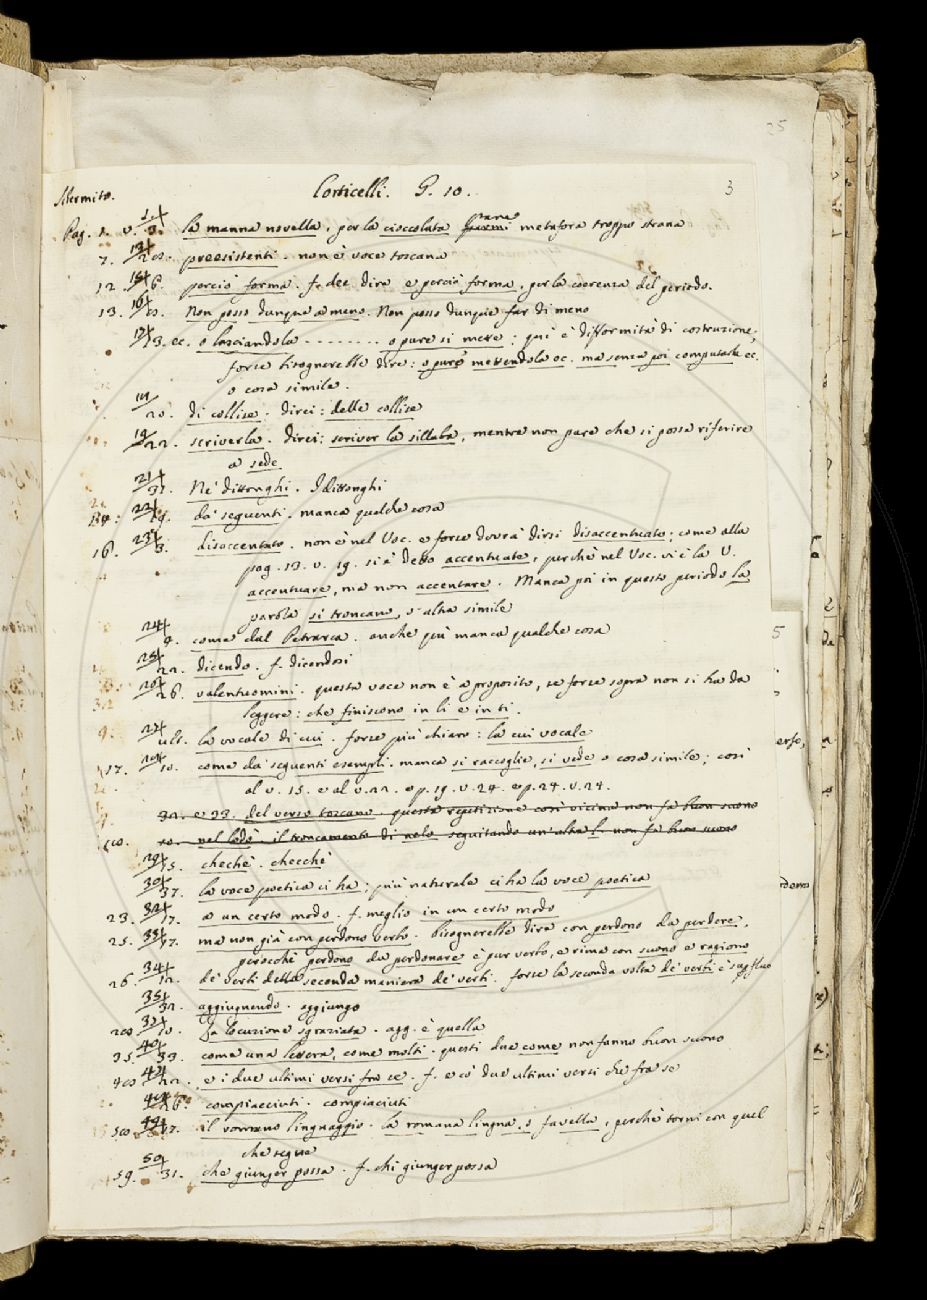 25
3
Corticelli. G. 10.
Pag. 1. v. 3. la manna novella, per la cioccolata parmi metafora troppo strana
7. 20. preesistenti. non è voce toscana
12. 6. perciò forma. f. dee dire e perciò forma, per la coerenza del periodo.
13. Non posso dunque a meno. Non posso dunque far di meno
13. ec. o lasciandola ........ o pure si mette: qui è difformità di costruzione.
forse bisognerebbe dire: o pure mettendola ec. ma senza poi computarla ec.
o cosa simile.
20. di collise. direi: delle collise
22. scriverla. direi: scriver la sillaba, mentre non pare che si possa riferire
a sede
31. Nè dittonghi. I dittonghi
19. da' seguenti. manca qualche cosa
16. 3. disaccentato. non è nel Voc. e forse dovrà dirsi disaccentuato; come alla
pag. 13. v. 19. si è detto accentuate, perchè nel Voc. vi è la V.
accentuare, ma non accentare. Manca poi in questo periodo la
parola si troncano, o altra simile
9. come dal Petrarca. anche qui manca qualche cosa
22. dicendo. f. dicendosi
26. valentuomini. questa voce non è a proposito, se forse sopra non si ha da
leggere: che finiscono in li e in ti.
ult. la vocale di cui. forse più chiaro: la cui vocale
17. 10. come da' seguenti esempli. manca si raccoglie, si vede o cosa simile; così
al v. 15. e al v. 22. e p. 19. v. 24. e p. 24. v. 24.
32. e 33. del verso toscano. questa repetizione così vicina non fa buon suono
nel lodò. il troncamento di nelo seguitando un'altra l. non fa buon suono
35. chechè. checchè
37. la voce poetica ci ha; più naturale ci ha la voce poetica
23. 17. a un certo modo. f. meglio in un certo modo
25. 17. ma non già con perdono verbo. bisognerebbe dire con perdono da perdere,
perocchè perdono da perdonare è pur verbo, e rima con suono e ragiono
26. 12. de' verbi della seconda maniera de' verbi. forse la seconda volta de' verbi è superfluo
32. aggiugnendo. aggiungo
10. la locuzione sgraziata. agg. è quella
35. 33. come una lettera, come molti. questi due come non fanno buon suono
40. 22. e i due ultimi versi fra ce. f. e co' due ultimi versi che fra se
26. compiacciuti. compiaciuti
50. 17. il romano linguaggio. la romana lingua, o favella, perchè torni con quel
che segue
59. 31. che giunger possa. f. chi giunger possa
5